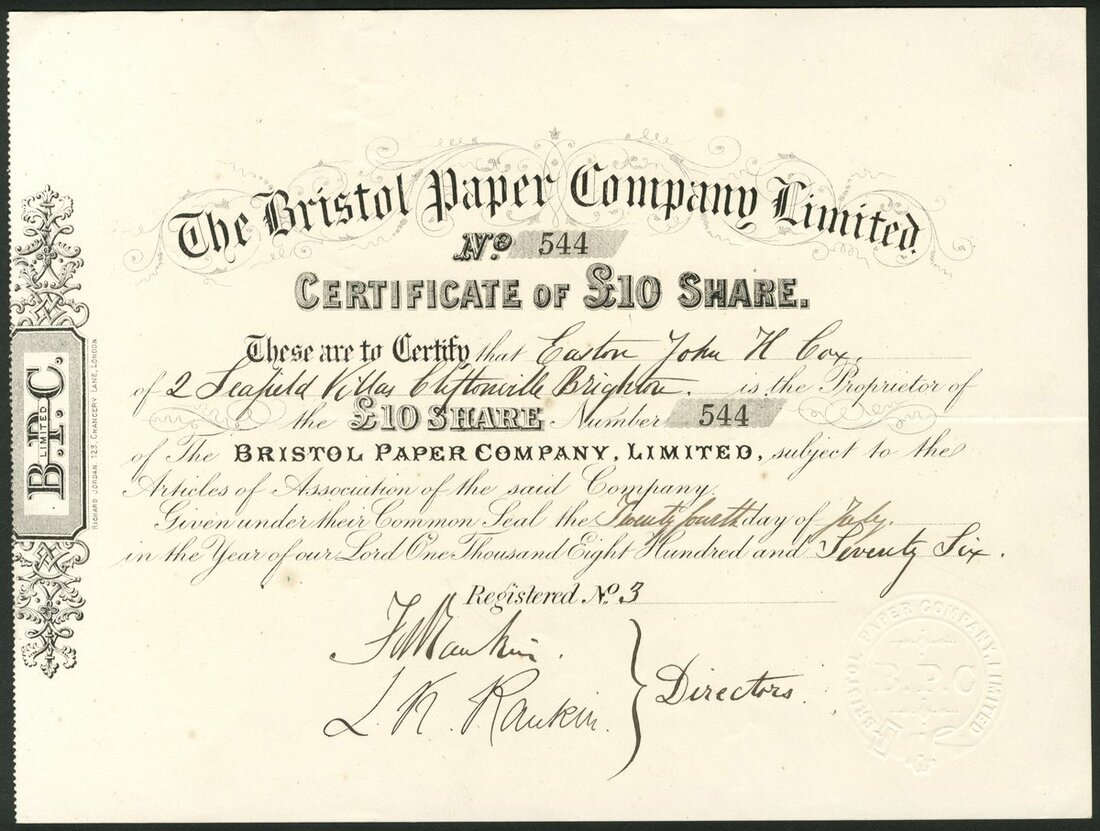 The Bristol Paper Company Limited
No. 544
CERTIFICATE OF £10 SHARE.
These are to Certify that Easton John H Cox,
of 2 Seafield Villas Cliftonville Brighton. is the Proprietor of
the £10 SHARE Number 544
of The BRISTOL PAPER COMPANY, LIMITED, subject to the
Articles of Association of the said Company.
Given under their Common Seal the Twenty fourth day of July.
in the Year of our Lord One Thousand Eight Hundred and Seventy Six.
Registered No. 3
L. K. Rankin.
Directors.
B.P.C.
LIMITED
RICHARD JORDAN 123, CHANCERY LANE, LONDON.
BRISTOL PAPER COMPANY, LIMITED.
B.P.C